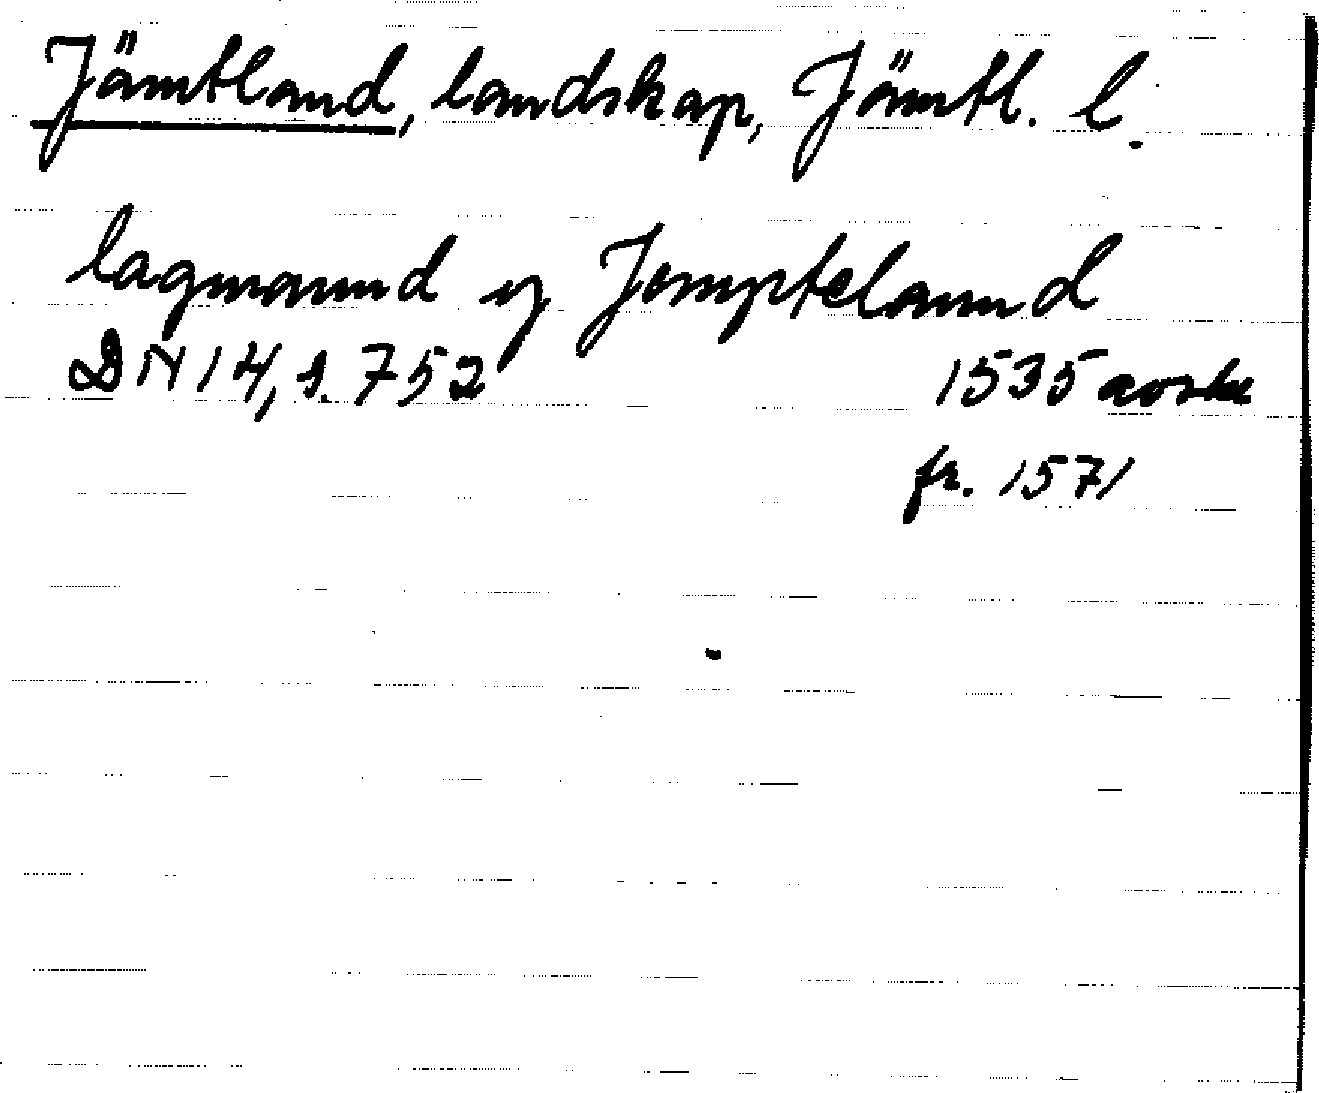 Jämtland, landskap, Jämtl. l.
lagmannd y Jemptelannd
DN 14, s. 752 1535 avskr
fr. 1571